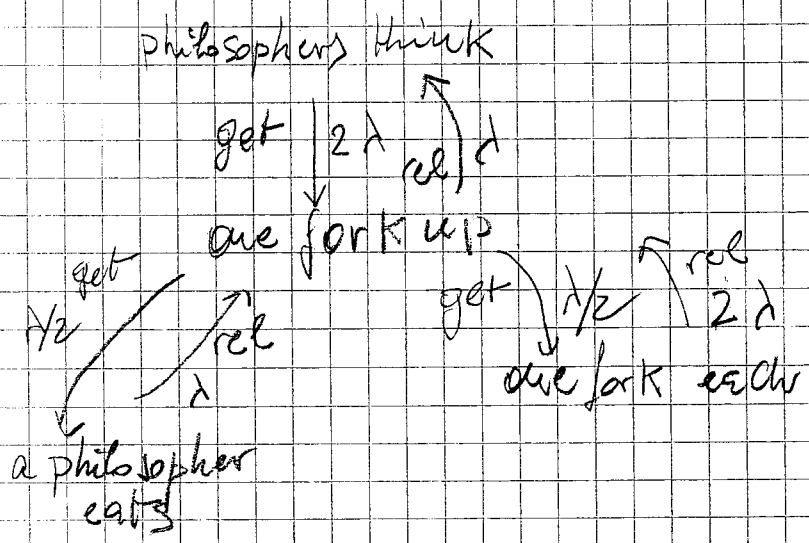 philosophers think
get 2 λ rel λ
one fork up
get λ/2 rel λ get λ/2 rel 2 λ
one fork each
a philosopher
eats